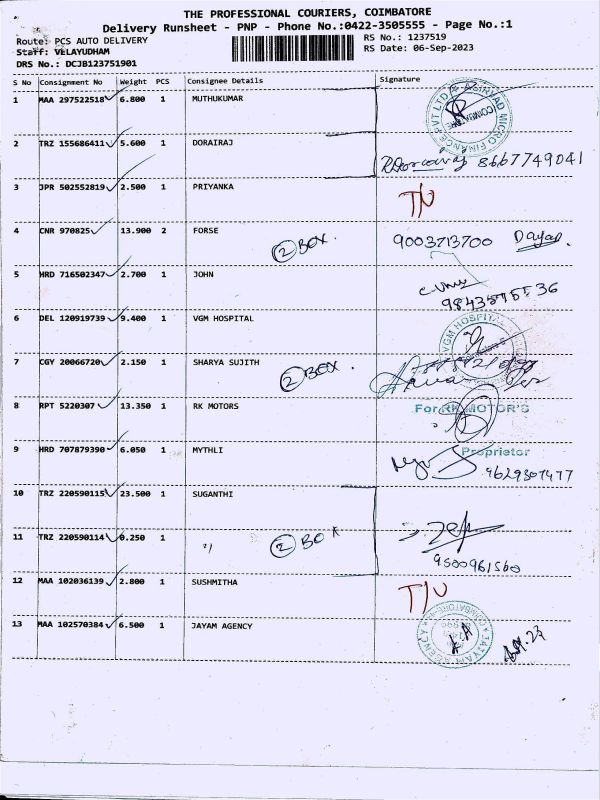 THE PROFESSIONAL COURIERS, COIMBATORE
Delivery Runsheet - PNP - Phone No.:0422-3505555 - Page No.:1
Route: PCS AUTO DELIVERY
RS No.: 1237519
Staff: VELAYUDHAM
RS Date: 06-Sep-2023
DRS No.: DCJB123751901
S No Consignment No Weight PCS Consignee Details Signature
1 MAA 297522518 6.800 1 MUTHUKUMAR
2 TRZ 155686411 5.600 1 DORAIRAJ
8667749041
3 JPR 502552819 2.500 1 PRIYANKA
4 CNR 970825 13.900 2 FORSE 2 BOX. 9003713700 Dayal.
5 HRD 716502347 2.700 1 JOHN
6 DEL 120919739 9.400 1 VGM HOSPITAL
VGM HOSPITAL
7 CGY 20066720 2.150 1 SHARYA SUJITH 2 BOX.
8 RPT 5220307 13.350 1 RK MOTORS
For RK MOTOR'S
Proprietor
9 HRD 707879390 6.050 1 MYTHLI
9629307477
10 TRZ 220590115 23.500 1 SUGANTHI
11 TRZ 220590114 0.250 1 2 BOX
9500961560
12 MAA 102036139 2.800 1 SUSHMITHA
13 MAA 102570384 6.500 1 JAYAM AGENCY